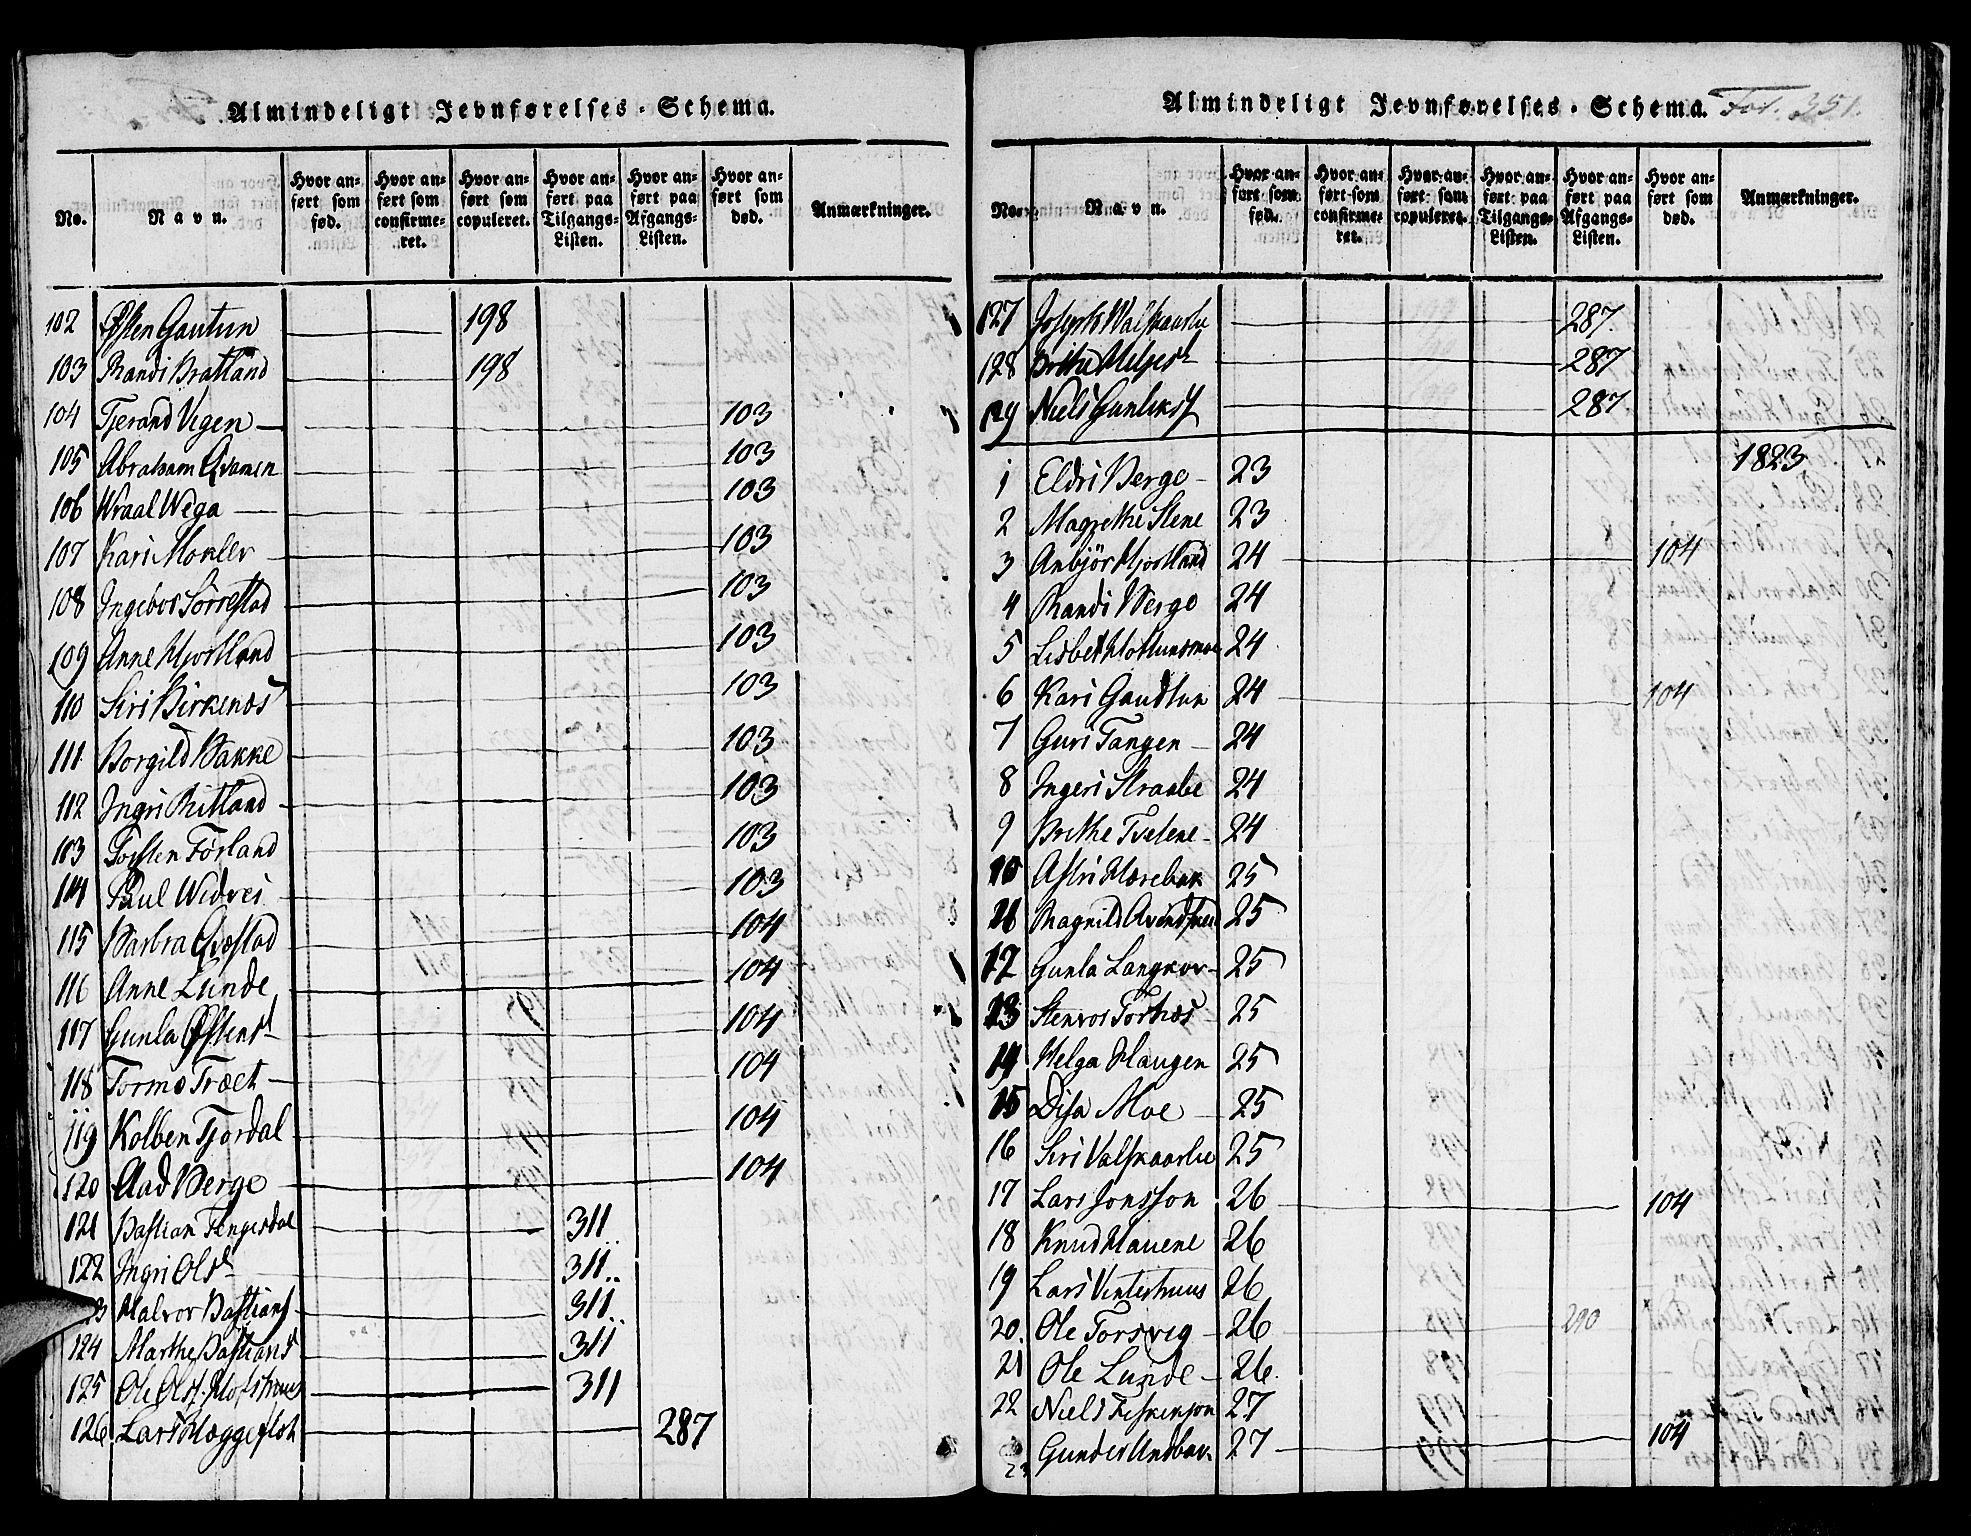 Almindeligt Jevnførelses-Schema.
No. Navn. Hvor anført som fød. Hvor anført som confirmeret. Hvor anført som copuleret. Hvor anført paa Tilgangs-Listen. Hvor anført paa Afgangs-Listen. Hvor anført som død. Anmærkninger.
102 Østen Gautun 198
103 Randi Bratland 198
104 Tjerand Vigen 103
105 Abraham 103
106 Wraal Wega 103
107 Kari Mokler 103
108 Ingebor Sørrestad 103
109 Anne Hjortland 103
110 Siri Birkenæs 103
111 Borgild Bakke 103
112 Ingri Ritland 103
113 Torsten Førland 103
114 Paul Widvei 103
115 Barbra Qvæstad 104
116 Anne Lunde 104
117 Gunla Østensd 104
118 Tormo Træet 104
119 Kolben Tjordal 104
120 Aad Berge 104
121 Bastian Tengesdal 311
122 Ingri Olsd 311
Halvor Bastians 311
124 Marthe Bastiansd 311
125 Ole Ols. 311
126 Lars 287
Almindeligt Jevnførelses-Schema. Fol. 351.
No. Navn. Hvor anført som fød. Hvor anført som confirmeret. Hvor anført som copuleret. Hvor anført paa Tilgangs-Listen. Hvor anført paa Afgangs-Listen. Hvor anført som død. Anmærkninger.
127 Joseph Walskaarbe 287.
128 Brithe 287
129 Niels Gunleks 287
1823
1 Eldri Berge 23
2 Magrethe Stene 23
3 Anbjør Hjortland 24 104
4 Randi Berge 24
5 Lisbet 24
6 Kari Gaudtun 24 104
7 Guri Tangen 24
8 Ingeri Straabe 24
9 Brithe Tvetene 24
10 Astri Harebak 25
11 Ragnild 25
12 Gunla 25
13 Stenvor Fosnæs 25
14 Helga Haugen 25
15 Disa Moe 25
16 Siri Valskaarbe 25
17 Lars Jonsson 26 104
18 Knud Havene 26
19 Lars Vinterhuus 26
20. Ole Torsveg 26 290
21 Ole Lunde 26.
22 Niels 27
23 Gunder 27 104